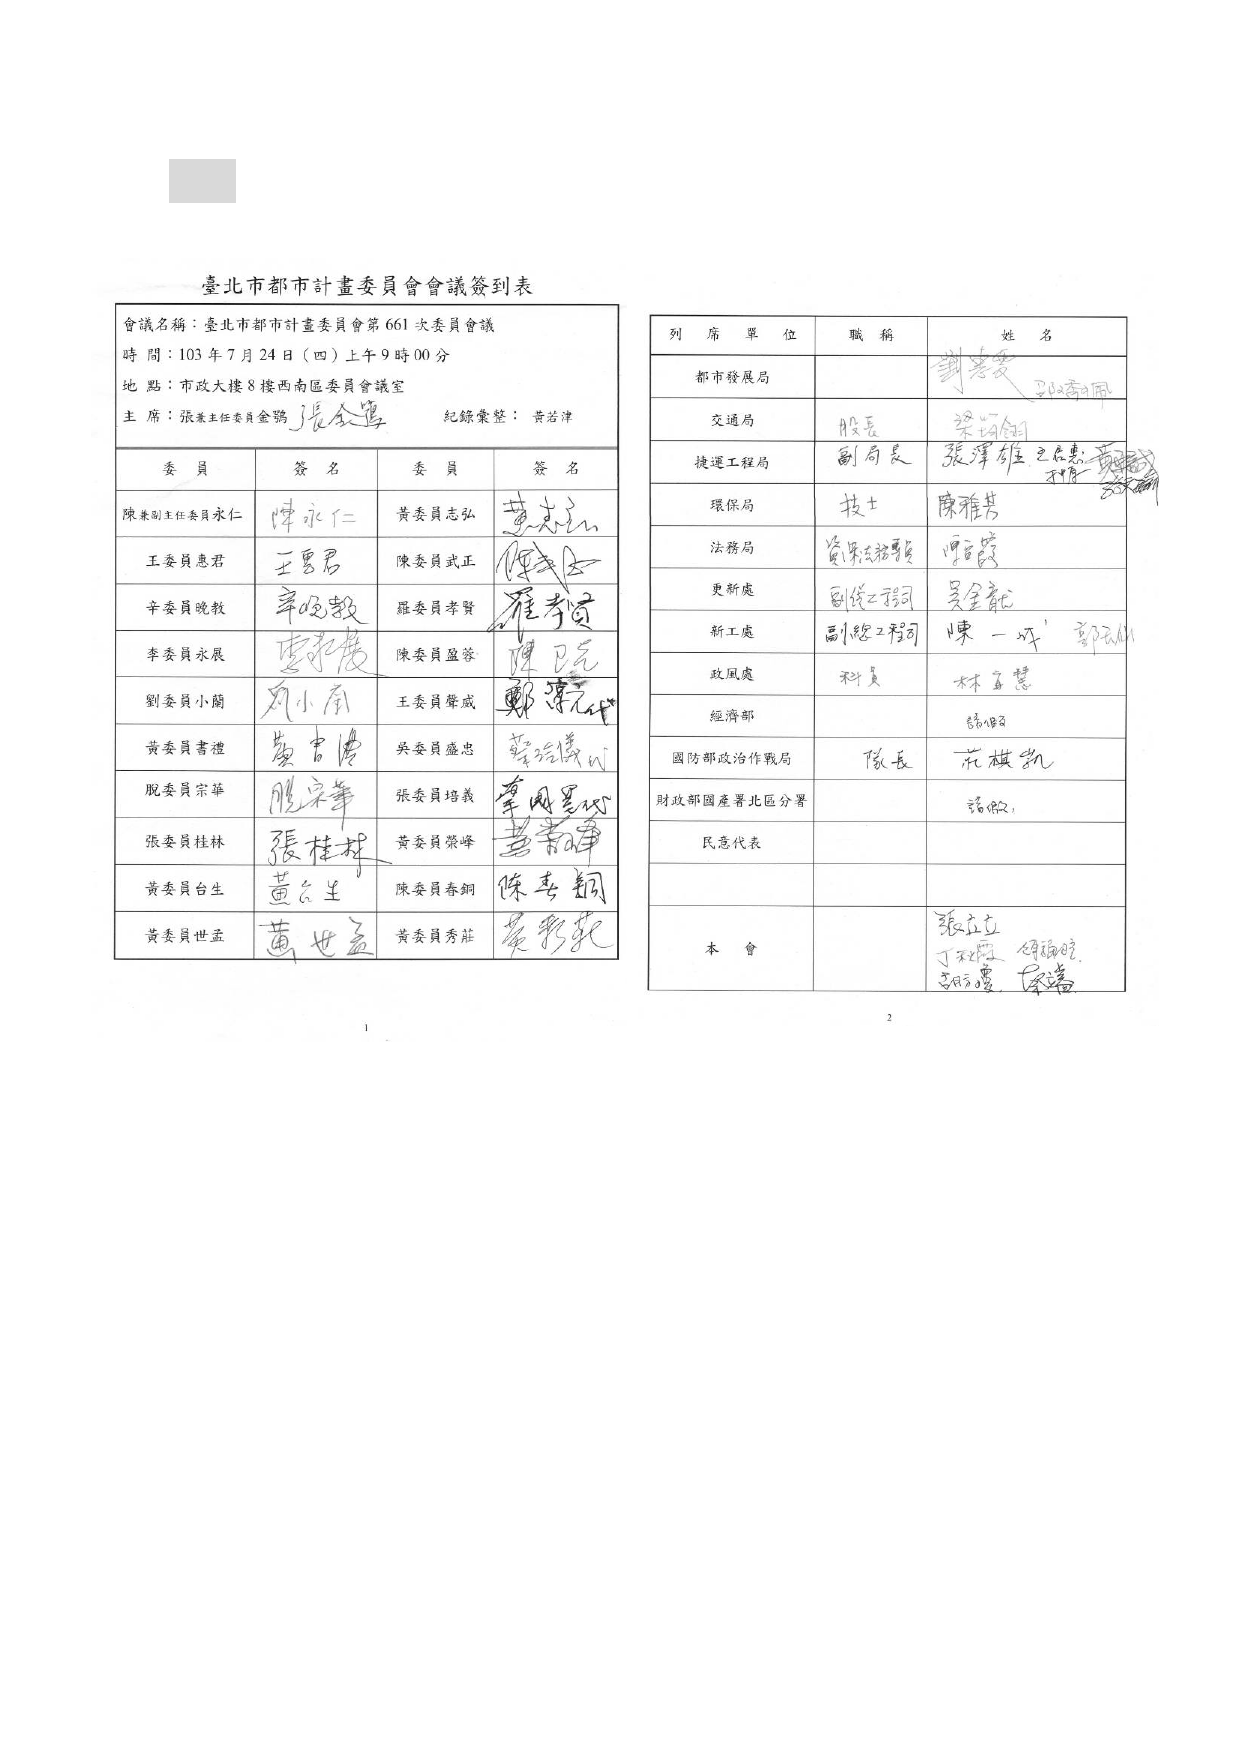 臺北市都市計畫委員會會議簽到表
會議名稱：臺北市都市計畫委員會第661次委員會議
時 間：103年7月24日（四）上午9時00分
地 點：市政大樓8樓西南區委員會議室
主 席：張兼主任委員金鶚 張金鶚 紀錄彙整： 黃若津
委 員 簽 名 委 員 簽 名
陳兼副主任委員永仁 陳永仁 黃委員志弘 黃志弘
王委員惠君 王惠君 陳委員武正 陳武正
辛委員晚教 辛晚教 羅委員孝賢 羅孝賢
李委員永展 李永展 陳委員盈蓉 陳
劉委員小蘭 劉小蘭 王委員聲威 鄭 代
黃委員書禮 黃書禮 吳委員盛忠 蔡 儀代
脫委員宗華 脫宗華 張委員培義 代
張委員桂林 張桂林 黃委員榮峰 黃榮峰
黃委員台生 黃台生 陳委員春銅 陳春銅
黃委員世孟 黃世孟 黃委員秀莊 黃秀莊
1
列 席 單 位 職 稱 姓 名
都市發展局 劉惠雯
交通局 股長
捷運工程局 副局長 張澤雄
環保局 技士 陳雅芳
法務局
更新處 副總工程司 吳金龍
新工處 副總工程司 陳一成
政風處 科員 林宜慧
經濟部 請假
國防部政治作戰局 隊長 莊棋凱
財政部國產署北區分署 請假
民意代表
本 會 張立立
丁秋霞
胡方瓊
2